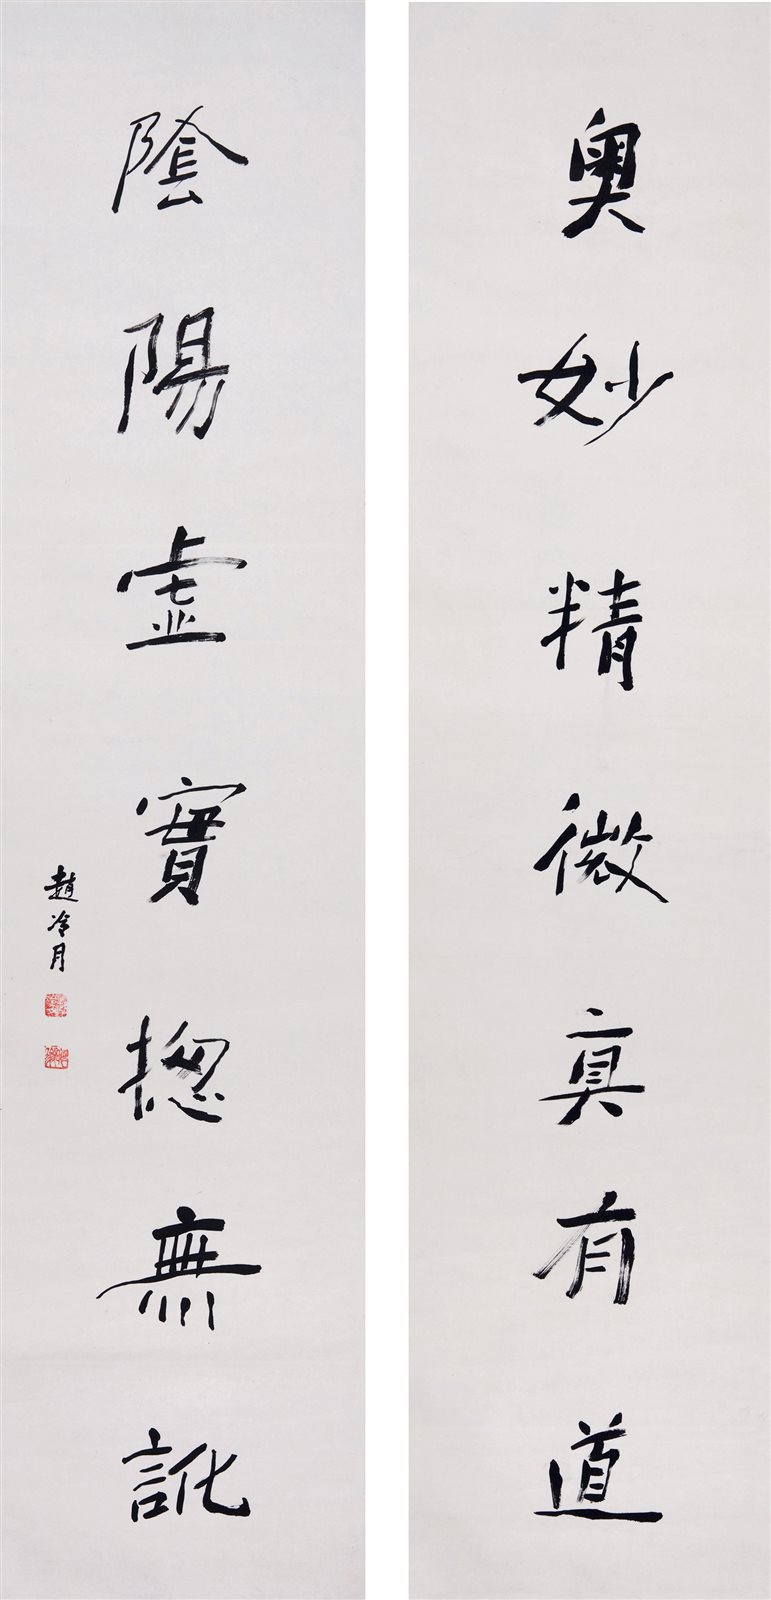 奥妙精微真有道
陰陽虛實摠無訛
趙冷月